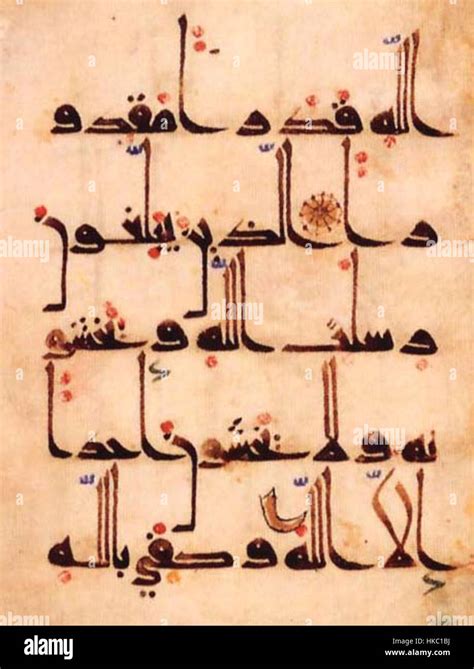 الله قدرا مقدو
را الذين يبلغون
رسلت الله ويخشو
نه ولا يخشون احدا
الا الله وكفى بالله
alamy
Image ID: HKC1BJ
www.alamy.com